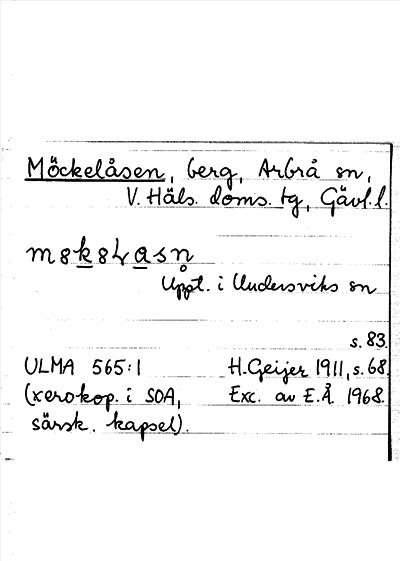 Möckelåsen, berg, Arbrå sn,
V. Häls. doms. tg, Gävl. l.
Uppt. i Undersviks sn
s. 83.
ULMA 565:1 H. Geijer 1911, s. 68
(xerokop. i SOA, Exc. av E.Å. 1968.
särsk. kapsel).